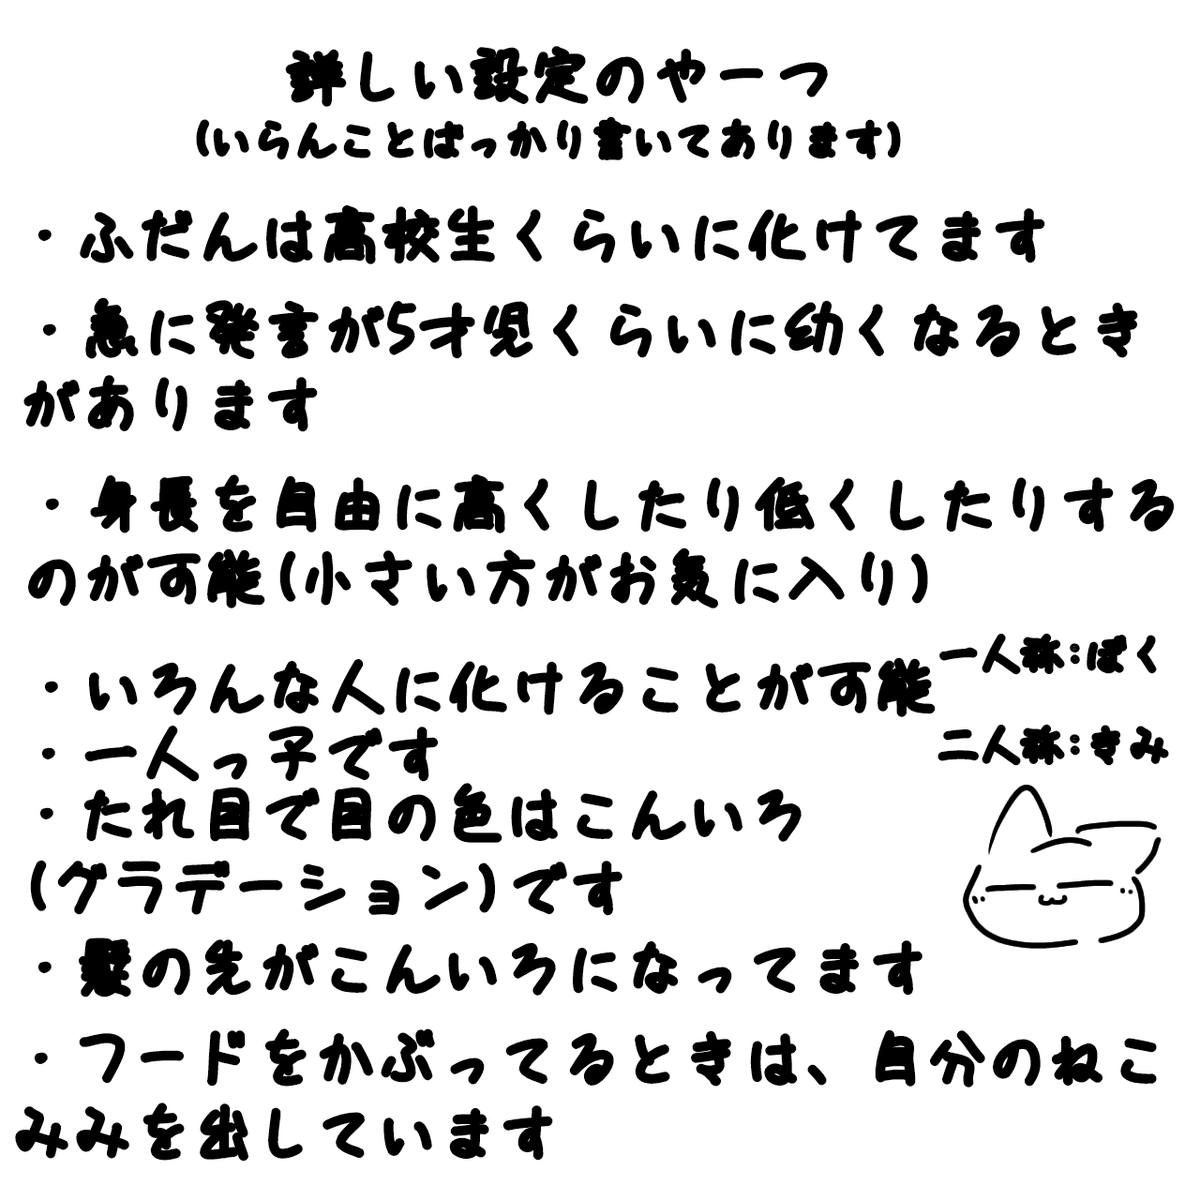 詳しい設定のやーつ
(いらんことばっかり書いてあります)
・ふだんは高校生くらいに化けてます
・急に発言が5才児くらいに幼くなるとき
があります
・身長を自由に高くしたり低くしたりする
のが可能(小さい方がお気に入り)
・いろんな人に化けることが可能
・一人っ子です
・たれ目で目の色はこんいろ
(グラデーション)です
・髪の先がこんいろになってます
・フードをかぶってるときは、自分のねこ
みみを出しています
一人称:ぼく
二人称:きみ